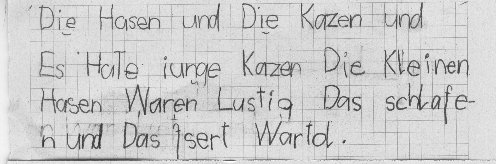 Die Hasen und Die Kazen und
Es Hate iunge Kazen Die Kleinen
Hasen Waren Lustig Das schlafe-
n und Das isert Wartd.